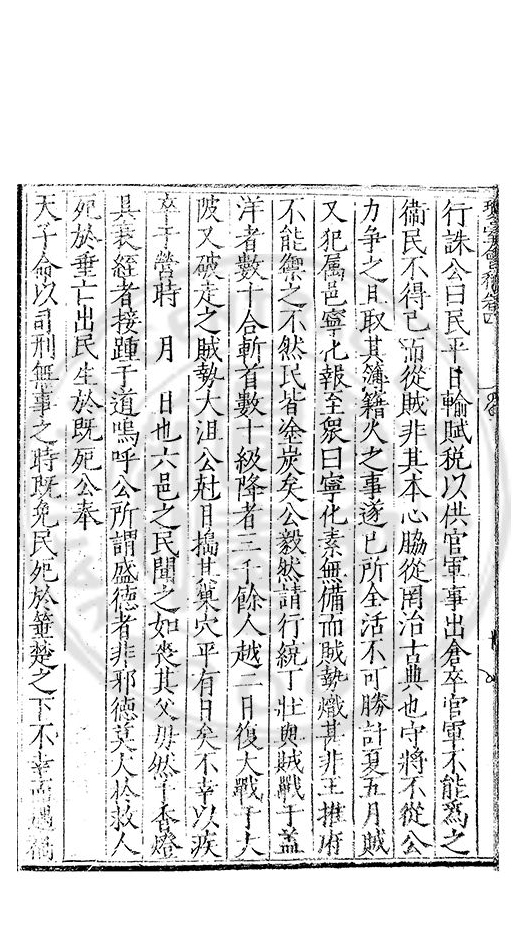 行誅公曰民平日輸賦稅以供官軍事出倉卒官軍不能爲之
衞民不得已而從賊非其本心脇從罔治古典也守將不從公
力爭之且取其簿籍火之事遂已所全活不可勝計夏五月賊
又犯属邑寧化報至衆曰寧化素無備而賊勢熾甚非王推府
不能禦之不然民皆塗炭矣公毅然請行統丁壯與賊戰于蓋
洋者數十合斬首數十級降者三千餘人越二日復大戰于大
陂又破走之賊勢大沮公尅日搗其巢穴平有日矣不幸以疾
卒于營時　月　日也六邑之民聞之如喪其父母然于香燈
具衰絰者接踵于道嗚呼公所謂盛德者非邪德莫大於救人
死於垂亡出民生於既死公奉
天子命以司刑無事之時既免民死於箠楚之下不幸而遇